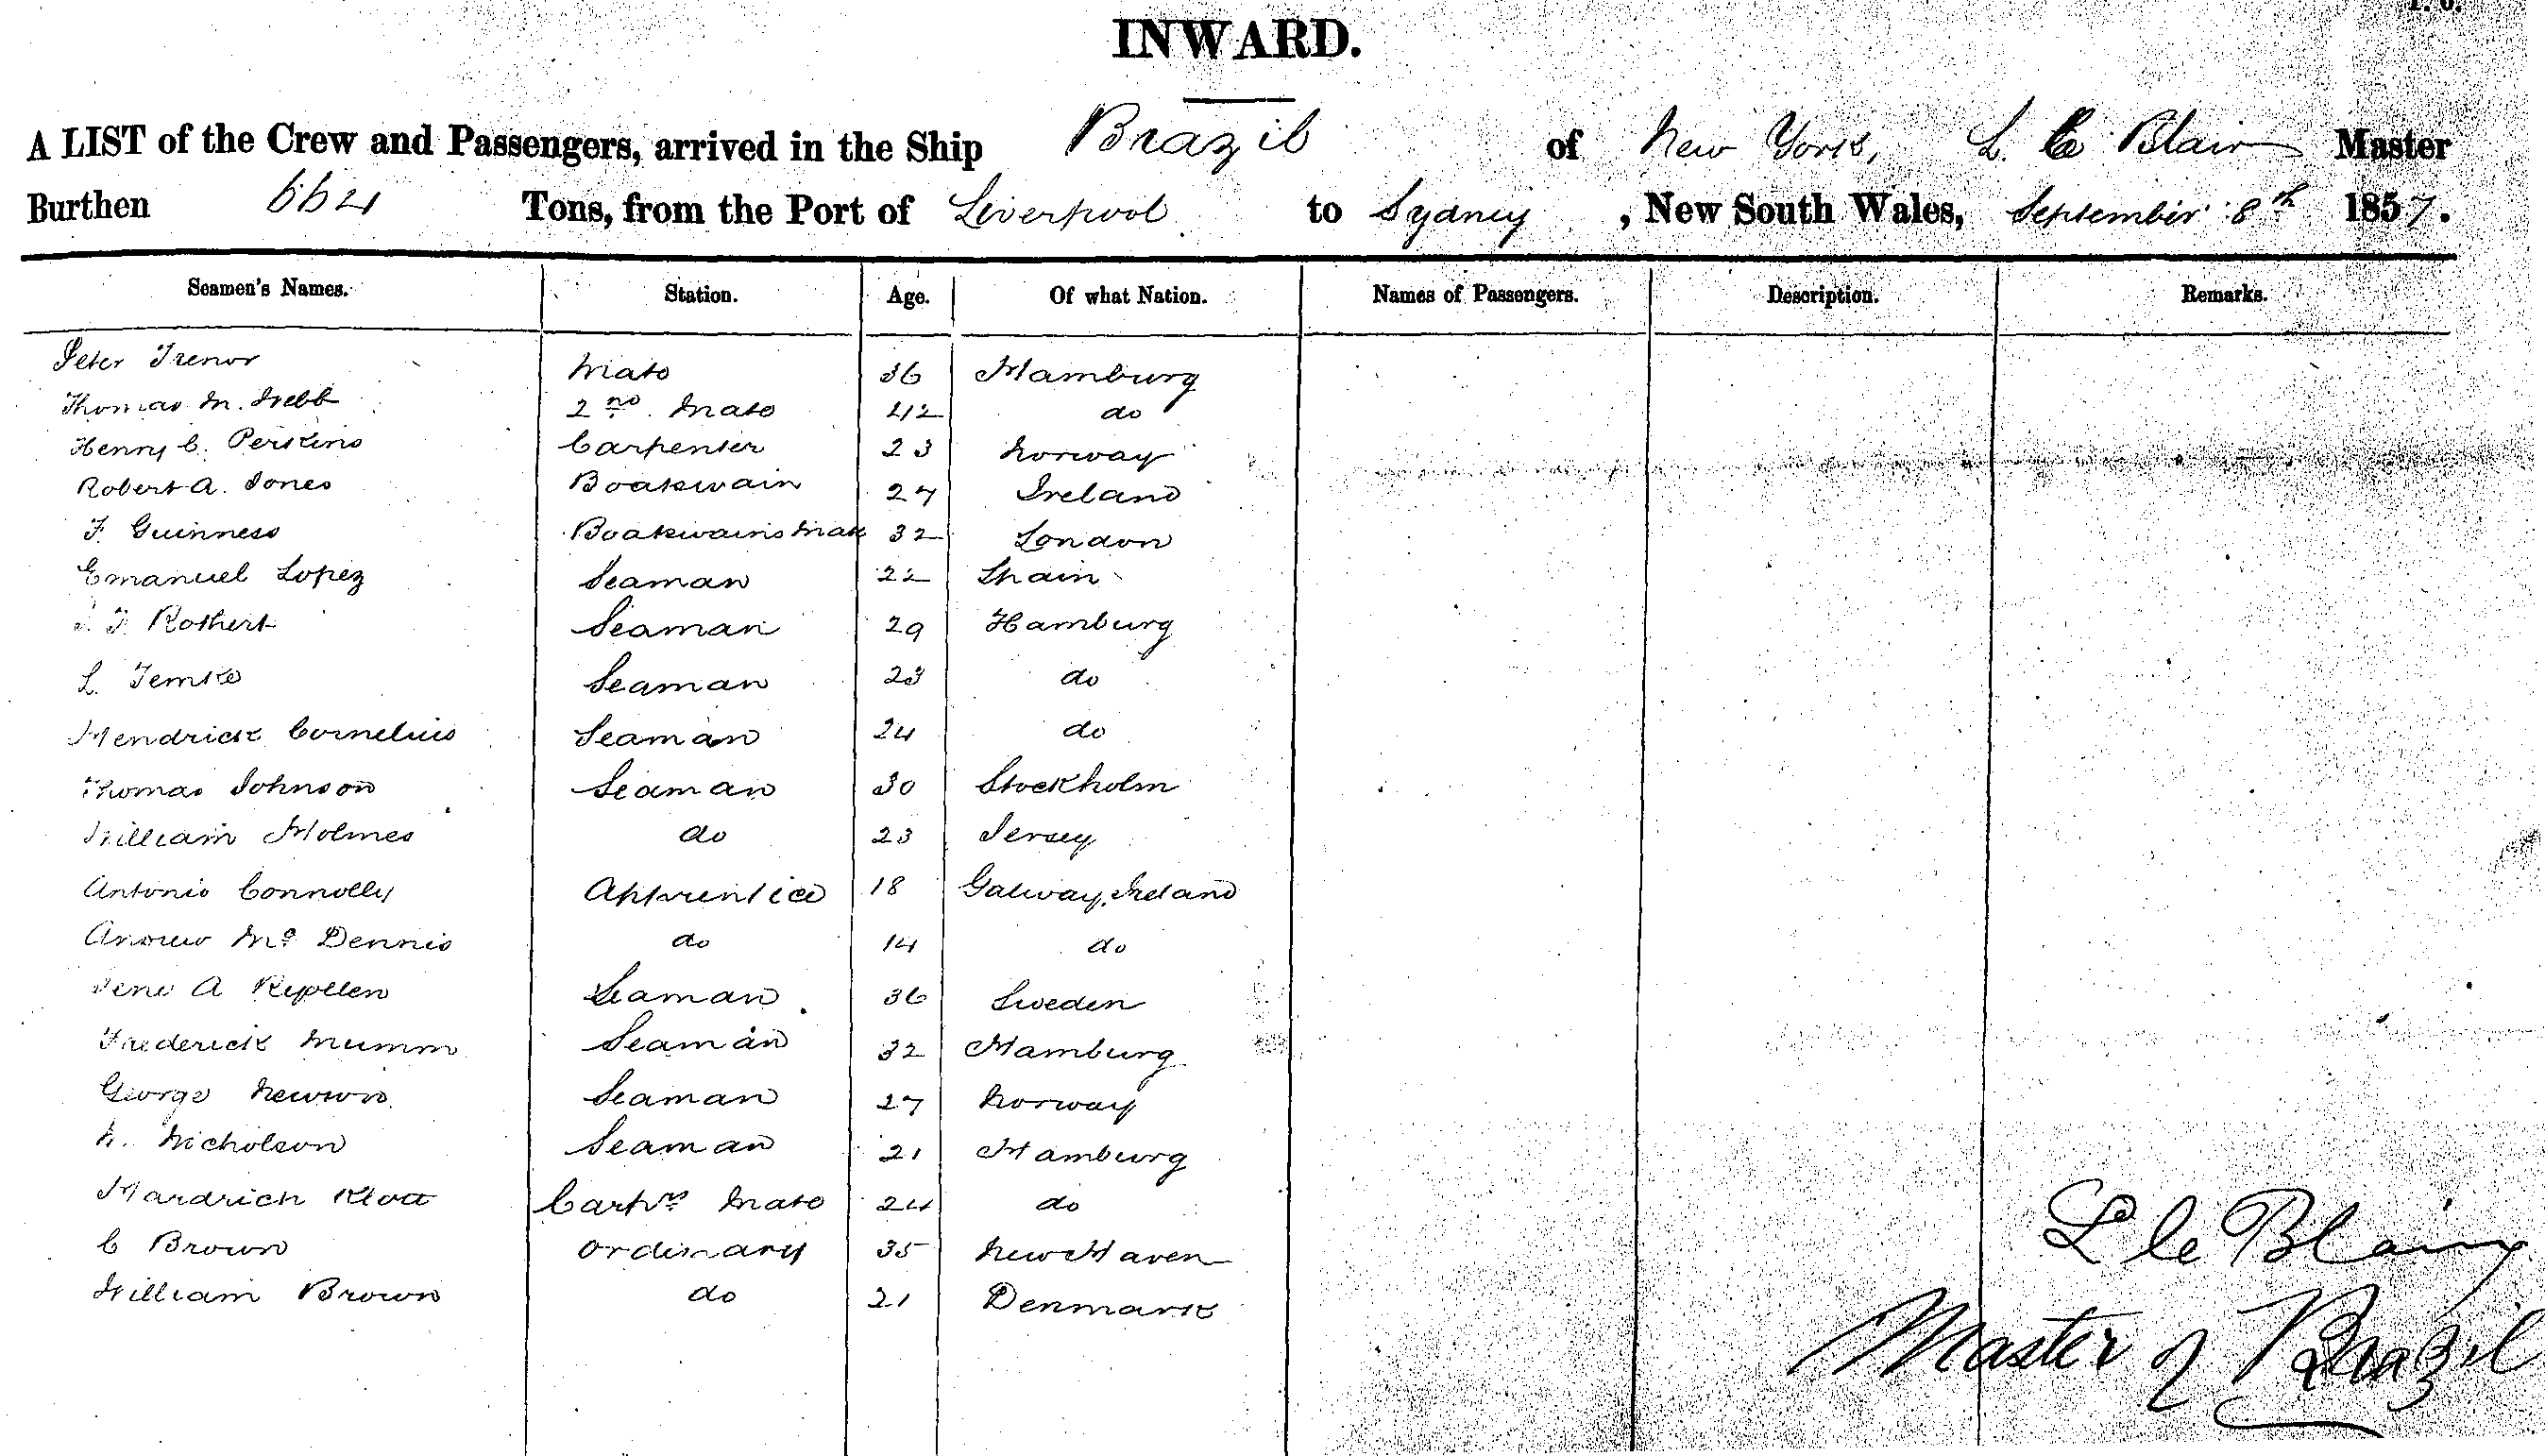 INWARD.
A LIST of the Crew and Passengers, arrived in the Ship Brazil of New York, L. C Blair Master
Burthen 664 Tons, from the Port of Liverpool to Sydney, New South Wales, September 8th 1857.
Seamen's Names. Station. Age. Of what Nation. Names of Passengers. Description. Remarks.
Peter Trenor Mate 36 Hamburg
Thomas M. Webb 2nd. Mate 42 do
Henry C. Perkins Carpenter 23 Norway
Robert A. Jones Boatswain 27 Ireland
F. Guinness Boatswains Mate 32 London
Emanuel Lopez Seaman 22 Spain
F. Rothert Seaman 29 Hamburg
L. Temke Seaman 23 do
Hendrick Cornelius Seaman 24 do
Thomas Johnson Seaman 30 Stockholm
William Holmes do 23 Jersey
Antonio Connolly Apprentice 18 Galway, Ireland
Andrew Mc Dennis do 14 do
A Seaman 36 Sweden
Frederick Mumm Seaman 32 Hamburg
George Seaman 27 Norway
N. Nicholson Seaman 21 Hamburg
Hardrich Klott Carprs Mate 24 do
C Brown Ordinary 35 New Haven
William Brown do 21 Denmark
L le Blair
Master of Brazil